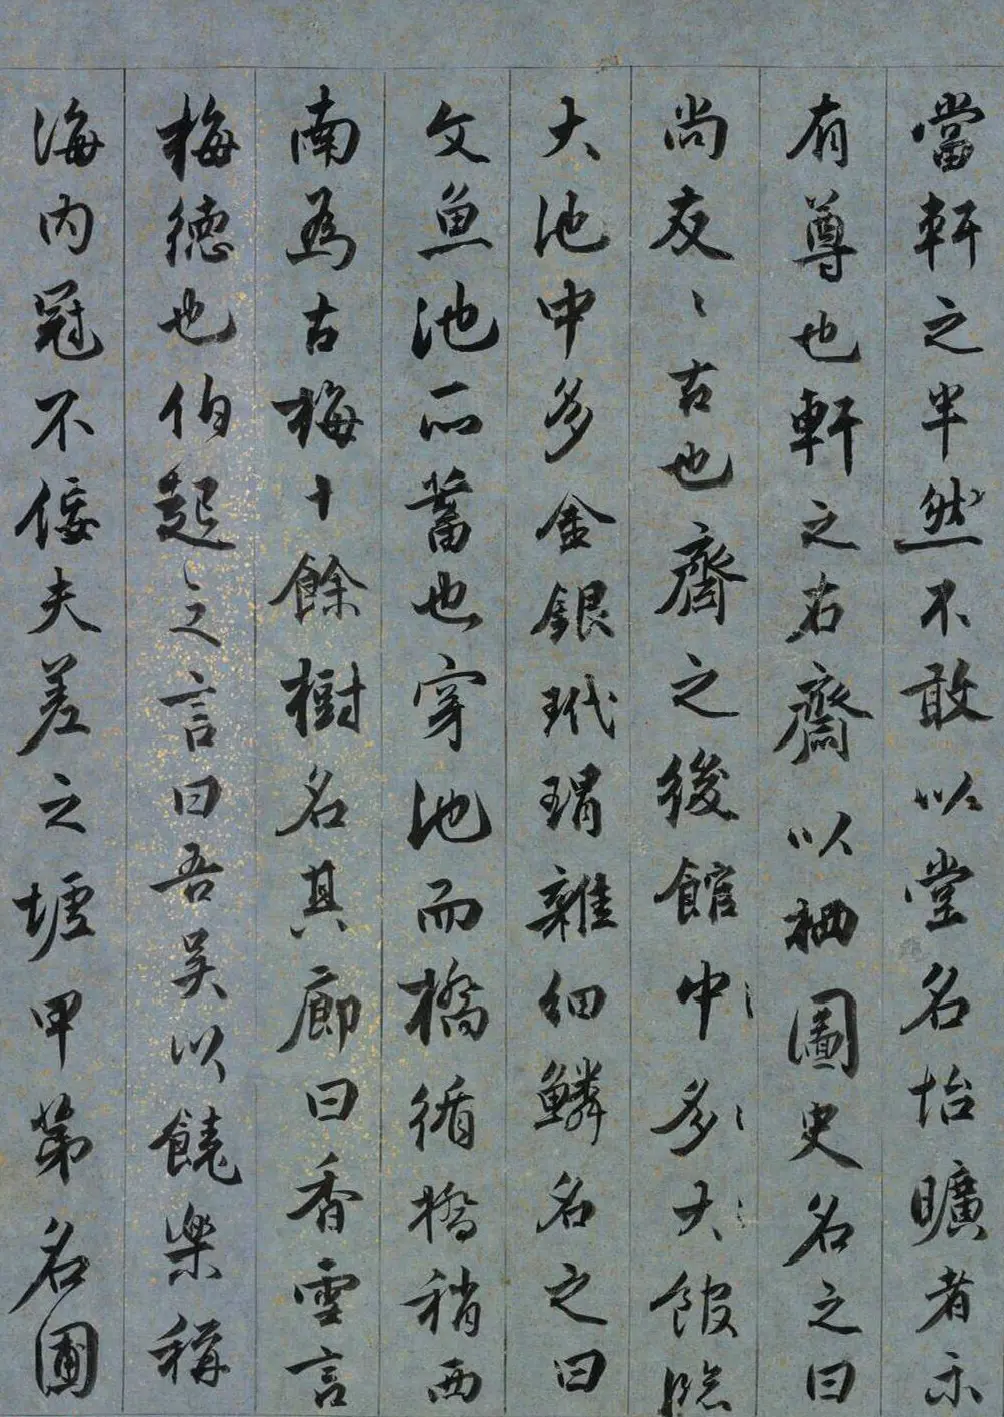 當軒之半然不敢以堂名怡曠者示
有尊也軒之右齋以栖圖史名之曰
尚友〻古也齋之後館中〻多〻大〻館臨
大池中多金銀玳瑁雜細鱗名之曰
文魚池所蓄也穿池而橋循橋稍西
南為古梅十餘樹名其廊曰香雪言
梅德也伯起〻之言曰吾吳以饒樂稱
海内冠不佞夫差之墟甲第名圃